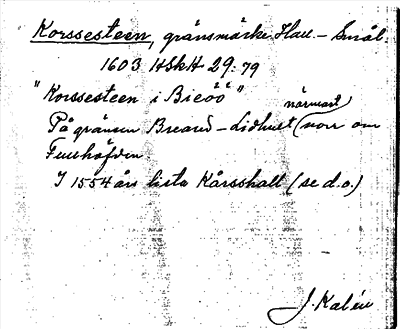 Korssesteen, gränsmärke Hall.- Smål.
1603 HSkH 29:79
"Korssesteen i Bieöö"
På gränsen Breard - Lidhult (närmast norr om
Fuuhöfden
I 1554 års lista Kårsshall (se d.o.)
J. Kalén